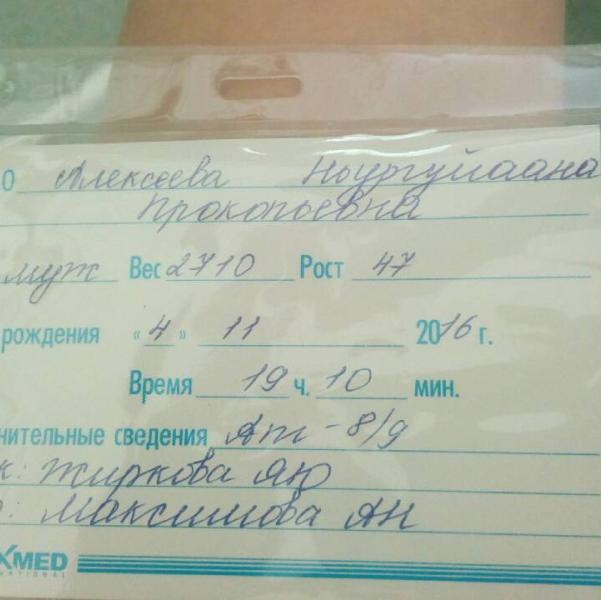 О Алексеева Ньургуйаана
Прокопьевна
муж Вес 2710 Рост 47
рождения «4» 11 2016 г.
Время 19 ч. 10 мин.
нительные сведения Апг - 8/9
к: Жиркова ЯЮ
р: Максимова АН
XMED
NATIONAL